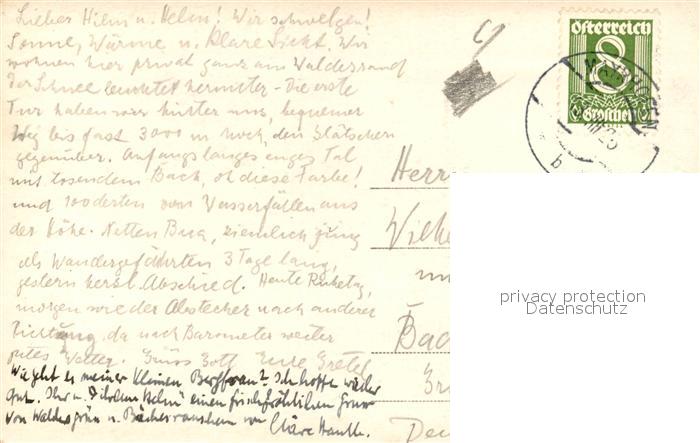 Lieber Hilm u. Helm! Wir schwelgen!
Sonne, Wärme u. klare Sicht. Wir
wohnen hier privat ganz am Waldesrand
der Schnee leuchtet herunter - Die erste
Tur haben wir hinter uns, bequemer
Weg bis fast 3000 m hoch, den Gletschern
gegenüber. Anfangs langes enges Tal
mit tosendem Bach, oh diese Farbe!
und 100derten von Wasserfällen aus
der Höhe. Netten Bua, ziemlich jung
als Wandergefährten 3 Tage lang,
gestern herzl. Abschied. Heute Ruhetag,
morgen wieder Abstecher nach anderer
Richtung, da nach Barometer weiter
gutes Wetter. Grüss Gott Eure Gretel
Wie geht es meiner kleinen Bergfrau? Ich hoffe wieder
gut. Ihr u. einen frischfröhlichen Gruss
von Waldesgrün u. Bächerauschen von Cläre
Österreich
8
Groschen
Herrn
Wilhe
Bad
Deu
privacy protection
Datenschutz